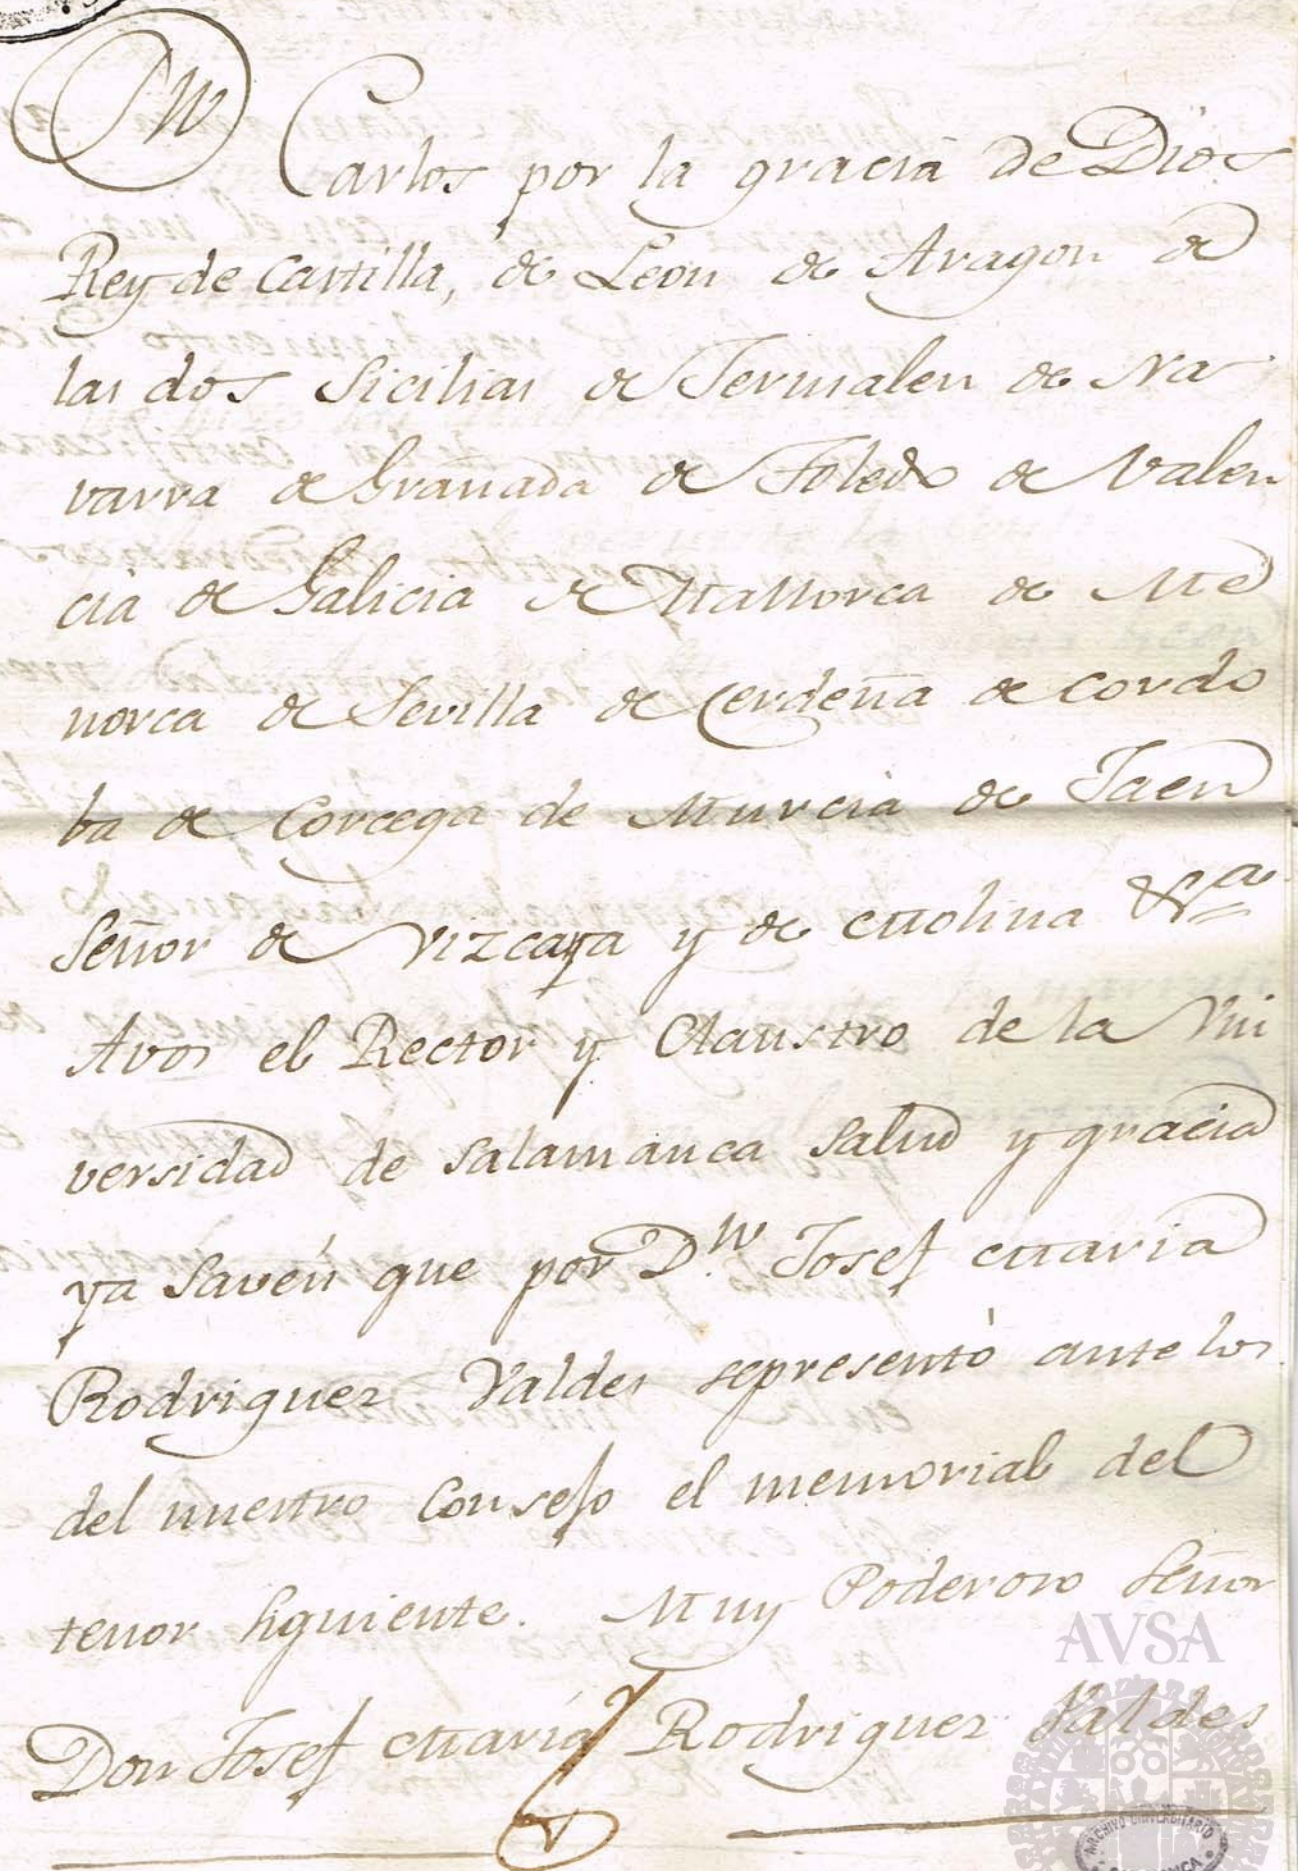 Dn
Carlos por la gracia de Dios
Rey de Castilla, de Leon de Aragon de
las dos Sicilias de Jerusalen de Na
varra de Granada de Toledo de Valen
cia de Galicia de Mallorca de Me
norca de Sevilla de Cerdeña de Cordo
ba de Corcega de Murcia de Jaen
Señor de Vizcaya y de Molina &a
Avos el Rector y Claustro de la Vni
versidad de Salamanca Salud y gracia
ya Saveis que por Dn. Josef Maria
Rodriguez Valdes sepresentó ante los
del nuestro Consejo el memorial del
tenor siguiente. Muy Poderoso Señor
Don Josef Maria Rodriguez Valdes
AVSA
ARCHIVO UNIVERSITARIO